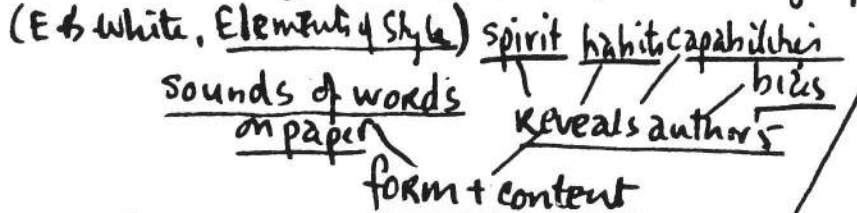 (EB White, Elements of Style) spirit habits capabilities
sounds of words bias
on paper reveals author's
form + content